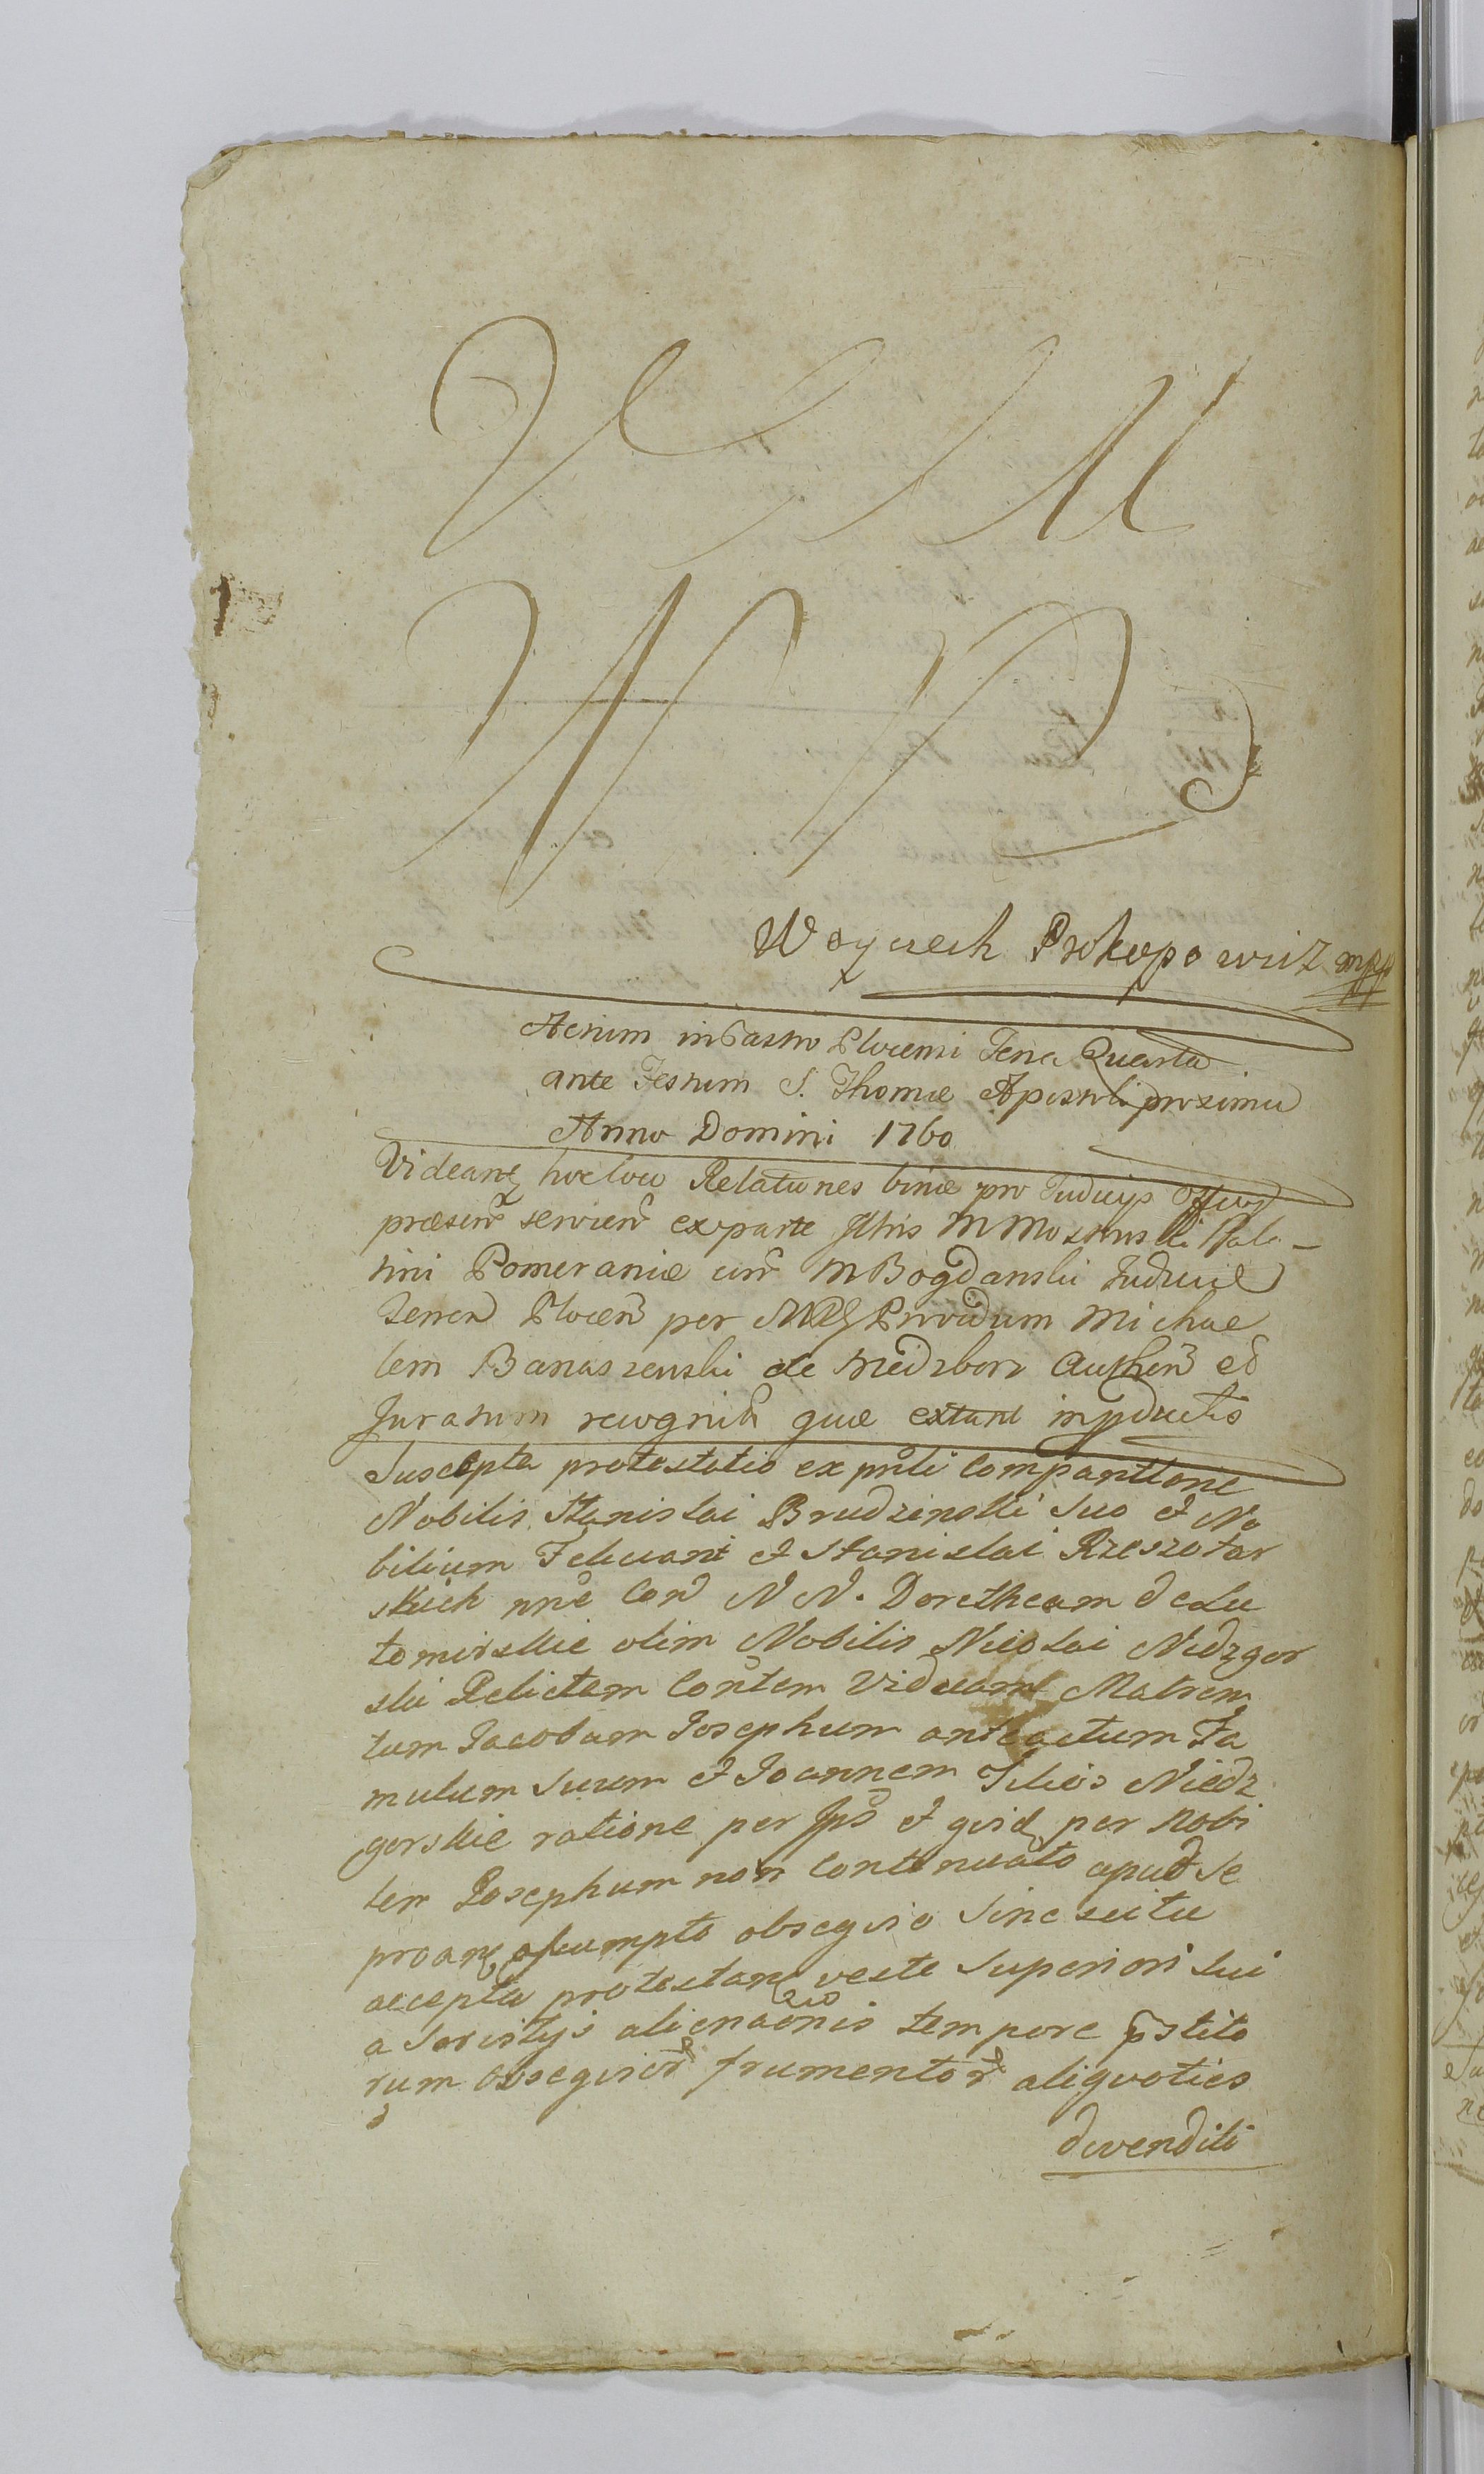 V J M
W P
Woyciech Prokopowicz mpp
Actum in Castro Plocensi Feria Quarta
ante Festum S. Thomæ Apostoli proxima
Anno Domini 1760
Videant hoc loco Relationes binæ pro Judicijs Officij
præsen servien ex parte M Mostowski Pala-
tini Pomeraniæ con M Bogdanski Judice
Terren Plocen per Providum Michae
lem Banaszewski de Niedzborz Authen et
Juratum recognitæ quæ extant in pductis
Suscepta protestatio ex pnti Comparitione
Nobilis Stanislai Brudzinski Suo et No
bilium Feliciani et Stanislai Rzeszotar
skich nne Con N N. Dorotheam de Lu
tomirskie olim Nobilis Nicolai Nidzgor
ski Relictam Contem Viduam Matrem
tum Jacobum Josephum anteactum Fa
mulum Suum et Joannem Filios Niedz
gorskie ratione per Ips et quid per Nobi
lem Josephum non Continuato apud Se
pro assumpto obsequio Sine scitu
accepta protestan veste Superiori Sui
a Servitijs alienaonis tempore pstito
rum obsequior frumentor aliquoties
divenditi